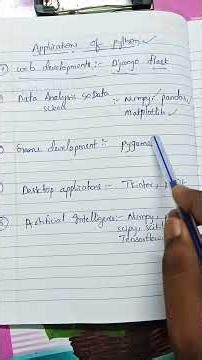 Applications of python
① web developments :- Django flask
Data Analysis & Data :- Numpy pandas
Science Matplotlib
Game development :- Pygame
Desktop applications :-
⑤ Artificial Intelligence :- Numpy
scipy
Tensorflow